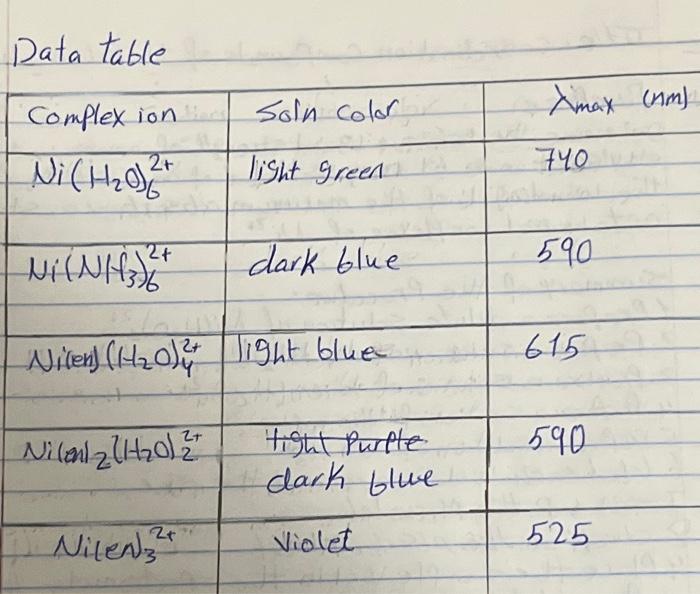 Data table
Complex ion Soln Color λmax (nm)
Ni(H₂O)₆²⁺ light green 740
Ni(NH₃)₆²⁺ dark blue 590
Ni(en)(H₂O)₄²⁺ light blue 615
Ni(en)₂(H₂O)₂²⁺ light Purple 590
dark blue
Ni(en)₃²⁺ Violet 525